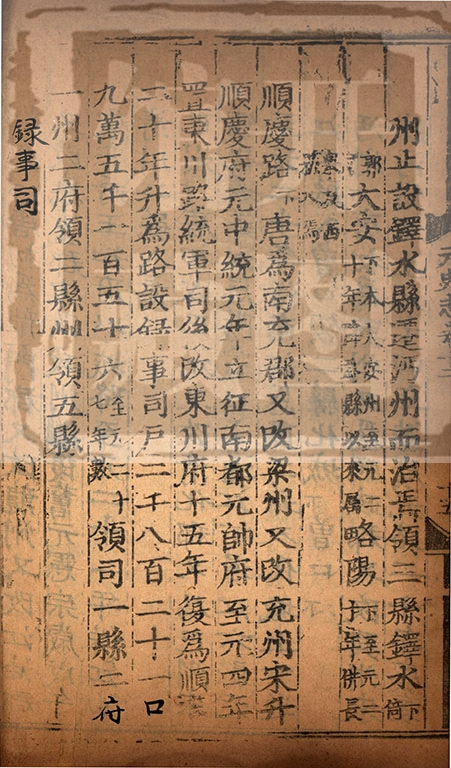 州止設鐸水縣遷沔州而治焉領三縣鐸水下倚
郭大安下本大安州至元二十年降爲縣以來屬略陽下至元二十年併長
舉及西
縣入焉
順慶路下唐爲南充郡又改梁州又改充州宋升
順慶府元中統元年立征南都元帥府至元四年
置東川路統軍司後改東川府十五年復爲順
二十年升爲路設録事司戶二千八百二十一口
九萬五千一百五十六至元二十七年數領司一縣二府
一州二府領二縣州領五縣
録事司